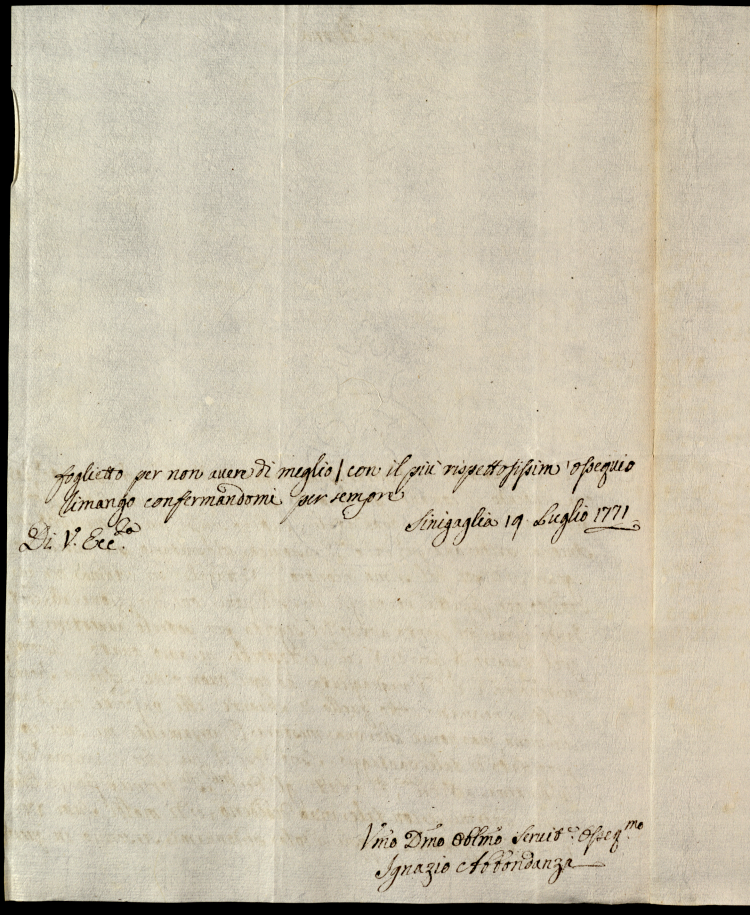 foglietto per non avere di meglio/ con il più rispettosissim' ossequio
rimango confermandomi per sempre
Sinigaglia 19. Luglio 1771.
Di V. Ecc.za
Vmo Dmo Oblmo Servit.e Osseq.mo
Ignazio Abbondanza